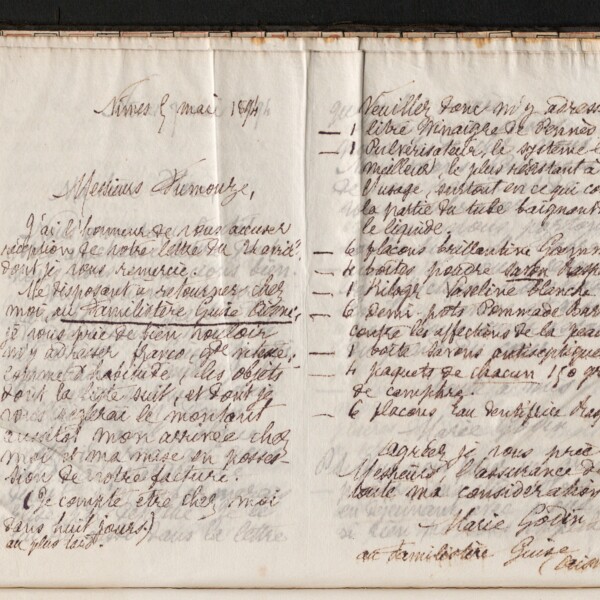 Nîmes 5 mai 1894
Messieurs Fumouze,
J'ai l'honneur de vous accuser
réception de votre lettre du 21 avril
dont je vous remercie.
Me disposant à retourner chez
moi, au Familistère Guise Aisne,
je vous prie de bien vouloir
m'y adresser franco, gde vitesse
comme d'habitude les objets
dont la liste suit, et dont je
vous règlerai le montant
aussitôt mon arrivée chez
moi et ma mise en posses-
sion de votre facture.
(Je compte être chez moi
dans huit jours)
au plus tard.
Veuillez donc m'y adress
— 1 litre Vinaigre de Pennès
— 1 Pulvérisateur, le système le
meilleur, le plus résistant à
l'usage, surtout en ce qui co
la partie du tube baignant
le liquide.
— 6 flacons brillantine
— 4 boîtes poudre savon
— 1 vaseline blanche
— 6 demi-pots Pommade
contre les affections de la peau
— 1 boîte savons antiseptiques
— 4 paquets de chacun 150 gr
de camphre.
— 6 flacons eau dentifrice
Agréez je vous prie
Messieurs, l'assurance de
toute ma considération
Marie Godin
au Familistère Guise
(Aisne